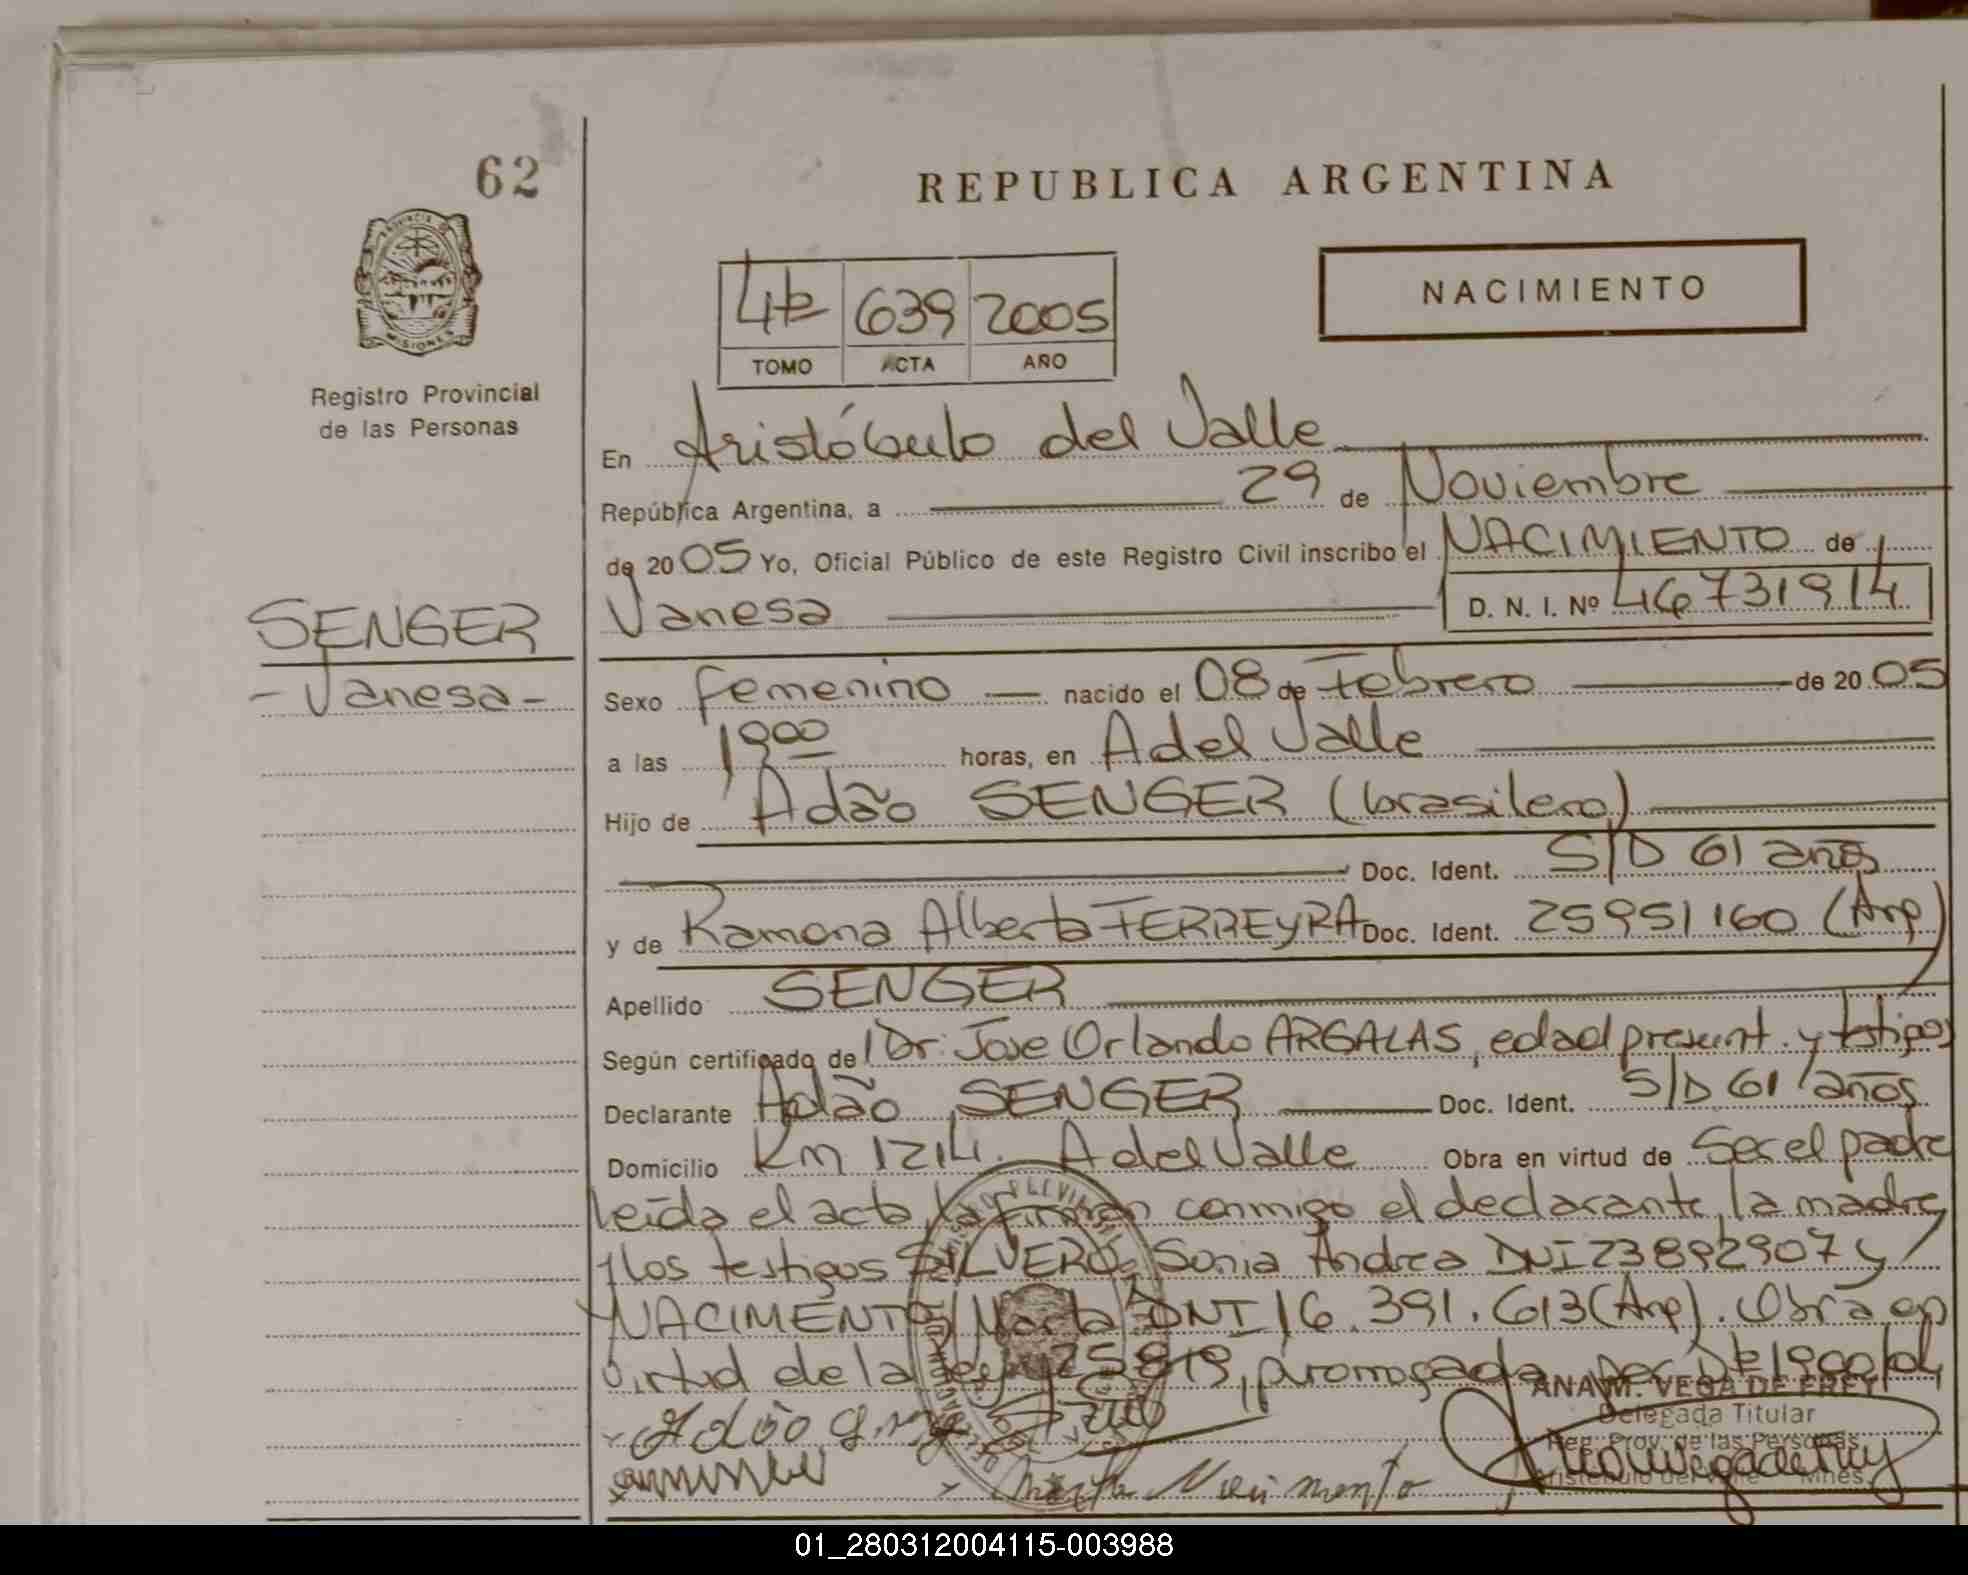 62
REPUBLICA ARGENTINA
PROVINCIA DE
MISIONES
Registro Provincial
de las Personas
NACIMIENTO
4to 639 2005
TOMO ACTA AÑO
En Aristóbulo del Valle
República Argentina, a 29 de Noviembre
de 2005 Yo, Oficial Público de este Registro Civil inscribo el NACIMIENTO de
Vanesa D. N. I. Nº 46731914
SENGER
- Vanesa -
Sexo femenino nacido el 08 de Febrero de 2005
a las 19 00 horas, en A del Valle
Hijo de Adão SENGER (brasilero)
Doc. Ident. S/D 61 años
y de Ramona Alberta FERREYRA Doc. Ident. 25951160 (Arg)
Apellido SENGER
Según certificado de Dr. Jose Orlando ARGALAS, edad presunt. y testigos
Declarante Adão SENGER Doc. Ident. S/D 61 años
Domicilio Km 1214. A del Valle Obra en virtud de Ser el padre
leída el acta, la firman conmigo el declarante, la madre
y los testigos SILVERO, Sonia Andrea DNI 23892907 y
NACIMENTO, Marta DNI 16.391.613 (Arg). Obra en
virtud de la ley 25819, promogada por D 1900/04
ANA M. VEGA DE FREY
Delegada Titular
Reg. Prov. de las Personas
Aristóbulo del Valle Mnes.
Marta Nacimento
01_280312004115-003988